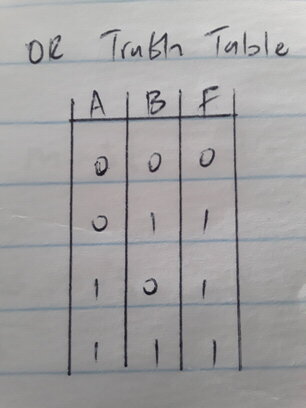 OR Truth Table
A B F
0 0 0
0 1 1
1 0 1
1 1 1